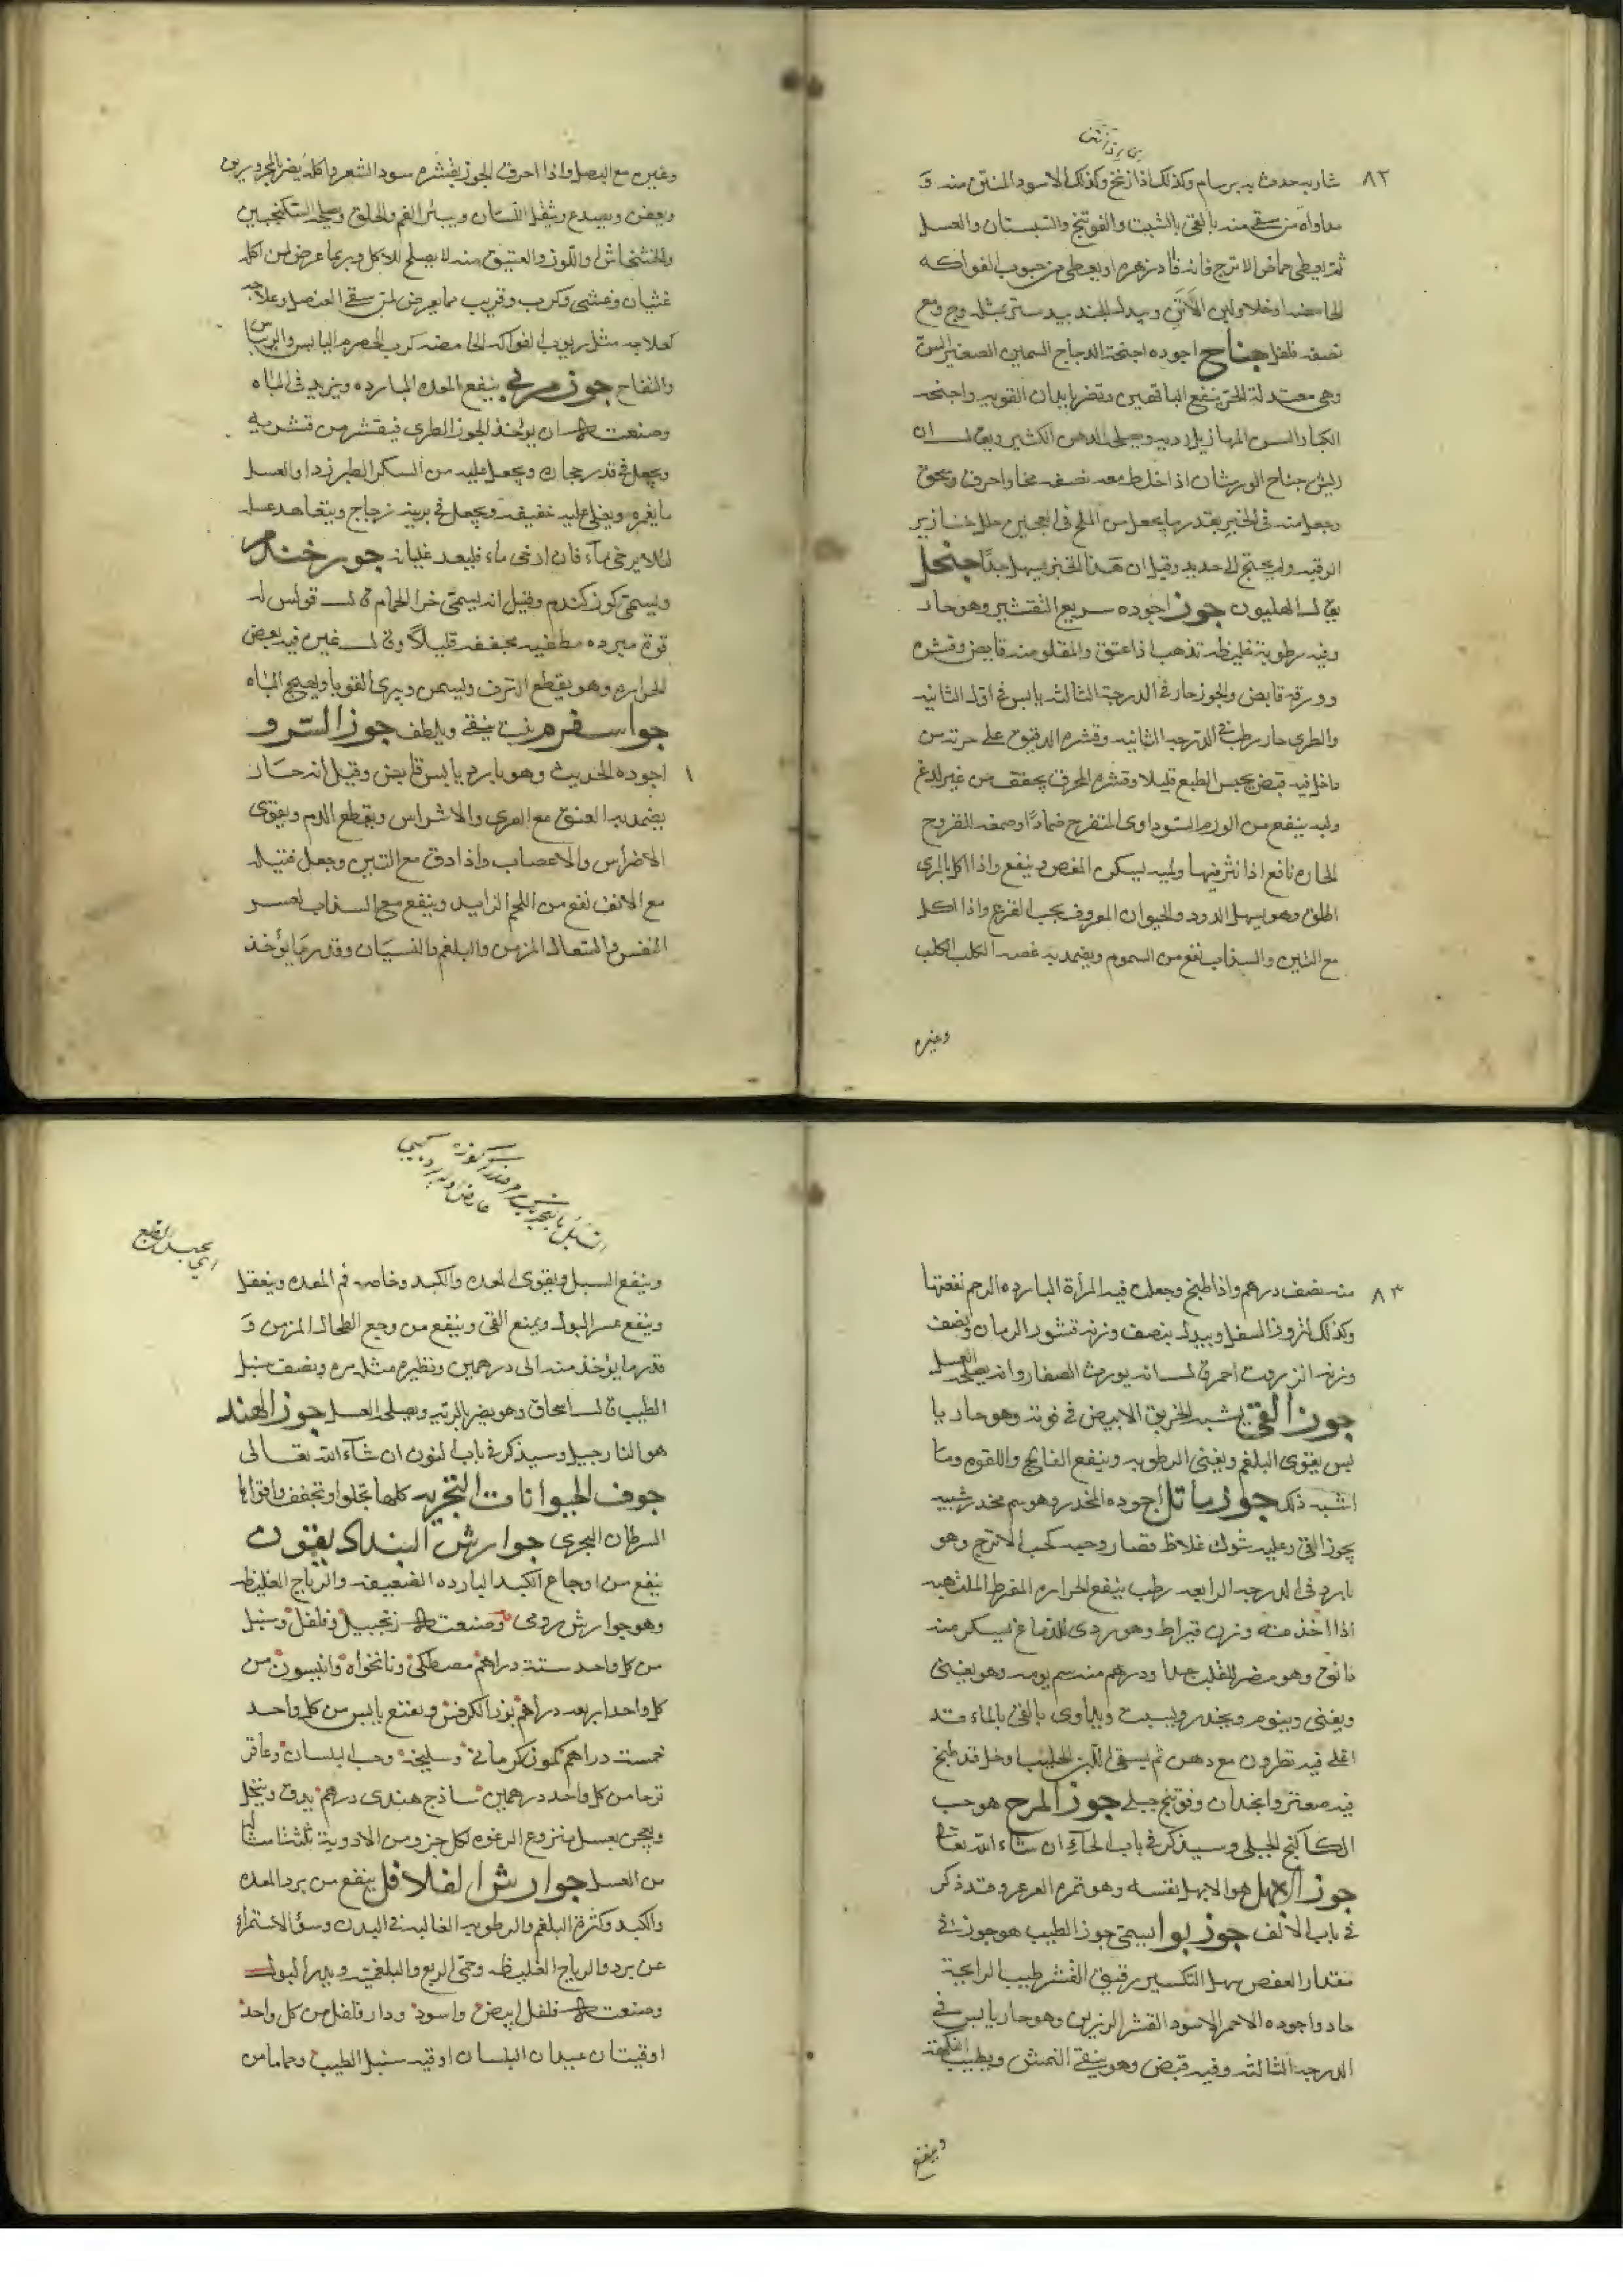 ٨٢
شاربه حدث به برسام وكذلك اذا زنخ وكذلك الاسود المنتن منه و
مداواة من سقى منه بالقى بالشبت والفوتنج والسبستان والعسل
ثم يعطى حماض الاترج فانه فادزهره او يعطى من حبوب الفواكه
الحامضه او خلا ولبن الاتن وبدله الجندبيدستر مثله وج ومع
نصفه فلفل جناح اجوده اجنحة الدجاج السمين الصغير السن
وهى معتدلة الحر ينفع الناقهين وتضر بابدان القويه واجنحه
الكبار السن المهازيل رديه ويصلحه الدهن الكثير ويقال ان
ريش جناح الورشان اذا خلط معه نصفه مخا واحرق وسحق
وجعل منه فى الخبز بقدر ما يجعل من الملح فى العجين حلل خنازير
الرقبه ولم يحتج الى حديد وقيل ان هذا الخبز يسهل جدا جنجل
يقال الهليون جوز اجوده سريع التقشير وهو حار
وفيه رطوبة غليظه تذهب اذا عتق والمقلو منه قابض وقشره
وورقه قابض والجوز حار فى الدرجة الثالثه يابس فى اول الثانيه
والطرى حار رطب فى الدرجه الثانيه وقشره الدقيق على حرته من
داخل فيه قبض يحبس الطبع قليلا وقشره المحرق يجفف من غير لدغ
ولبه ينفع من الورم السوداوى المتقرح ضمادا وصمغه للقروح
الحاره نافع اذا نثر فيها ولبه يسكن المغص وينفع واذا اكل بالمرى
اطلق وهو يسهل الدود والحيوان المعروف بحب القرع واذا اكل
مع التين والسذاب نفع من السموم ويضمد به عضه الكلب الكلب
وغيره
وغيره مع البصل واذا احرق الجوز بقشره سود الشعر واكله يضر بالمحرورين
ويعفن ويصدع ويثقل اللسان ويبثر الفم والحلق ويصلحه السكنجبين
والخشخاش او اللوز والعتيق منه لا يصلح للاكل وربما عرض لمن اكله
غثيان وغشى وكرب وقريب مما يعرض لمن سقى العنصل وعلاجه
كعلاجه مثل ربوب الفواكه الحامضه كرب الحصرم اليابس والريباس
والتفاح جوز مربى ينفع المعده البارده ويزيد فى الباه
وصنعته ان يؤخذ الجوز الطرى فيقشر من قشريه
ويجعل فى قدر حجاره ويجعل عليه من السكر الطبرزد او العسل
ما يغمره ويغلى عليه خفيفه ويجعل فى برنية زجاج ويتعاهد عسله
لئلا يرخى ماء فان ارخى ماء فليعد غليانه جوز جندم
ويسمى كوز كندم وقيل انه يسمى خرا الحمام قال قولس له
قوة مبرده مطفيه مجففه قليلا وقال غيره فيه بعض
الحراره وهو يقطع النزف ويسمن ويبرى القوبا ويهيج الباه
جواسفرم نبت ينقى ويلطف جوز السرو
اجوده الحديث وهو بارد يابس قابض وقيل انه حار
يضمد به الفتق مع الغرى والاشراس ويقطع الدم ويقوى
الاضراس والاعصاب واذا دق مع التين وجعل فتيله
مع الانف نفع من اللحم الزايد وينفع مع السذاب لعسر
النفس والسعال المزمن والبلغم والنسيان وقدر ما يؤخذ
٨٣
منه نصف درهم واذا طبخ وجعلت فيه المرأة البارده الرحم نفعتها
وكذلك لبروز السفل وبدله بنصف وزنه قشور الرمان ونصف
وزنه انزروت احمر قال انه يورث الصفار وانه يصلحه العسل
جوز القى يشبه الخربق الابيض فى قوته وهو حار يا
بس يقوى البلغم ويفنى الرطوبه وينفع الفالج واللقوه وما
اشبه ذلك جوز ماثل اجوده المخدر وهو سم مخدر شبيه
بجوز القى وعليه شوك غلاظ قصار وحبه كحب الاترج وهو
بارد فى الدرجه الرابعه رطب ينفع الحراره المفرطه الملتهبه
اذا اخذ منه وزن قيراط وهو ردى للدماغ يسكر منه
دانق وهو مضر للقلب جدا ودرهم منه سم يومه وهو يغثى
ويغنى وينوم ويخدر ويسبت ويداوى بالقى بالماء قد
اغلى فيه نطرون مع دهن ثم يسقى اللبن الحليب او خل قد طبخ
فيه صعتر وانجدان وفوتنج جبلى جوز المرج هو حب
الكاكنج الجبلى وسيذكر فى باب الحاء ان شاء الله تعالى
جوز الابهل هو الابهل نفسه وهو ثمره العرعر وقد ذكر
فى باب الالف جوز بوا يسمى جوز الطيب هو جوز فى
مقدار العفص سهل التكسير رقيق القشر طيب الرايحة
حاد واجوده الاحمر الاسود القشر الرزين وهو حار يابس فى
الدرجه الثالثه وفيه قبض وهو ينقى النمش ويطيب النكهة
وينفع
وينفع السبل ويقوى المعده والكبد وخاصه فم المعده ويعقل
وينفع عسر البول ويمنع القى وينفع من وجع الطحال المزمن و
قدر ما يؤخذ منه الى درهمين ونظيره مثله مره ونصف سنبل
الطيب قال اسحاق وهو يضر بالريه ويصلحه العسل جوز الهند
هو النارجيل وسيذكر فى باب النون ان شاء الله تعالى
جوف الحيوانات البحريه كلها تجلو او تجفف واقواها
السرطان البحرى جوارش البنداديقون
ينفع من اوجاع الكبد البارده الضعيفه والرياح الغليظه
وهو جوارش رومى وصنعته زنجبيل وفلفل وسنبل
من كل واحد ستة دراهم مصطكى ونانخواه وانيسون من
كل واحد اربعه دراهم بزر الكرفس ونعنع يابس من كل واحد
خمسة دراهم كمون كرمانى وسليخه وحب البلسان وعاقر
قرحا من كل واحد درهمين ساذج هندى درهم يدق وينخل
ويعجن بعسل منزوع الرغوه لكل جزو من الادوية ثلثة امثالها
من العسل جوارش الفلافل ينفع من برد المعده
والكبد وكثرة البلغم والرطوبه الغالبه فى البدن وسؤ الاستمراء
عن برد والرياح الغليظه وحمى الربع والبلغميه ويدر البول
وصنعته فلفل ابيض واسود ودار فلفل من كل واحد
اوقيتان عيدان البلسان اوقيه سنبل الطيب وحماما من